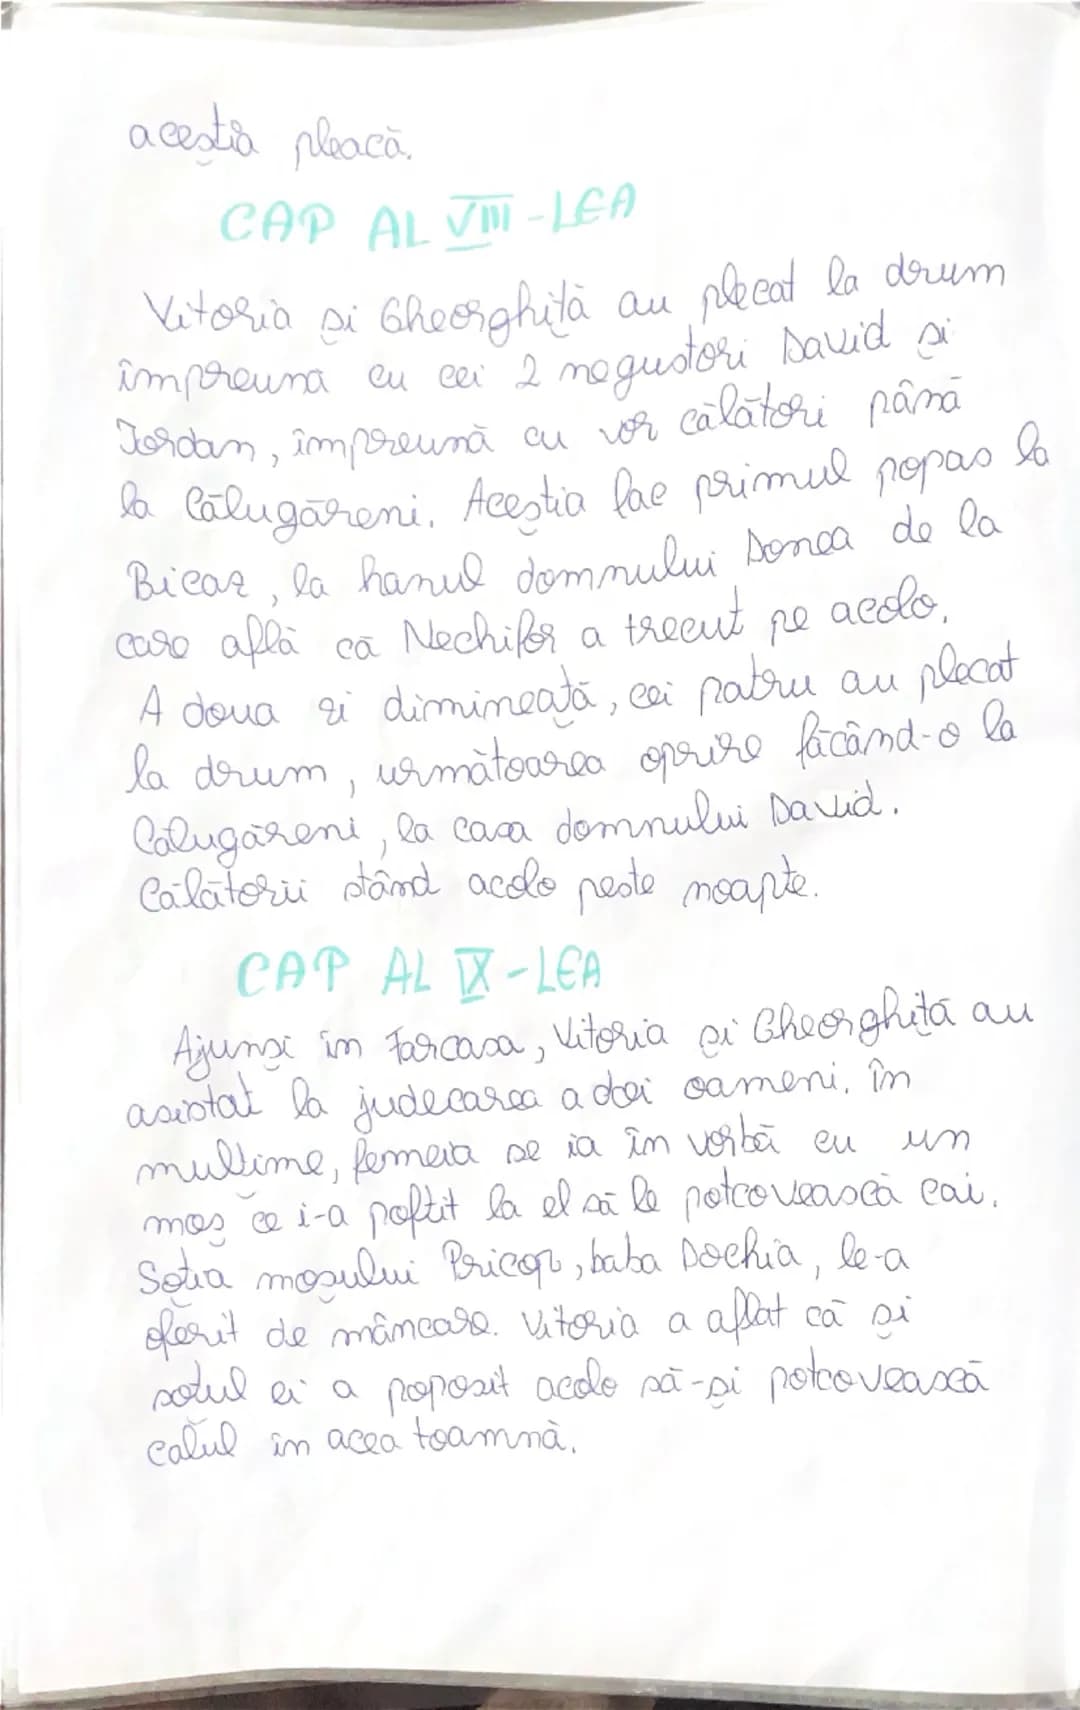 aceștia pleacă.
CAP AL VIII-LEA
Vitoria și Gheorghiță au plecat la drum
împreuna cu cei 2 negustori David și
Iordan, împreună cu vor călători până
la Călugăreni. Aceștia fac primul popas la
Bicaz, la hanul domnului Donea de la
care află că Nechifor a trecut pe acolo.
A doua zi dimineață, cei patru au plecat
la drum, următoarea oprire făcând-o la
Călugăreni, la casa domnului David.
Călătorii stând acolo peste noapte.
CAP AL IX-LEA
Ajunși în Farcasa, Vitoria și Gheorghiță au
asistat la judecarea a doi oameni. În
mulțime, femeia se ia în vorbă cu un
moș ce i-a poftit la el să le potcovească cai.
Soția moșului Pricop, baba Dochia, le-a
oferit de mâncare. Vitoria a aflat că și
soțul ei a poposit acolo să-și potcovească
calul în acea toamnă.